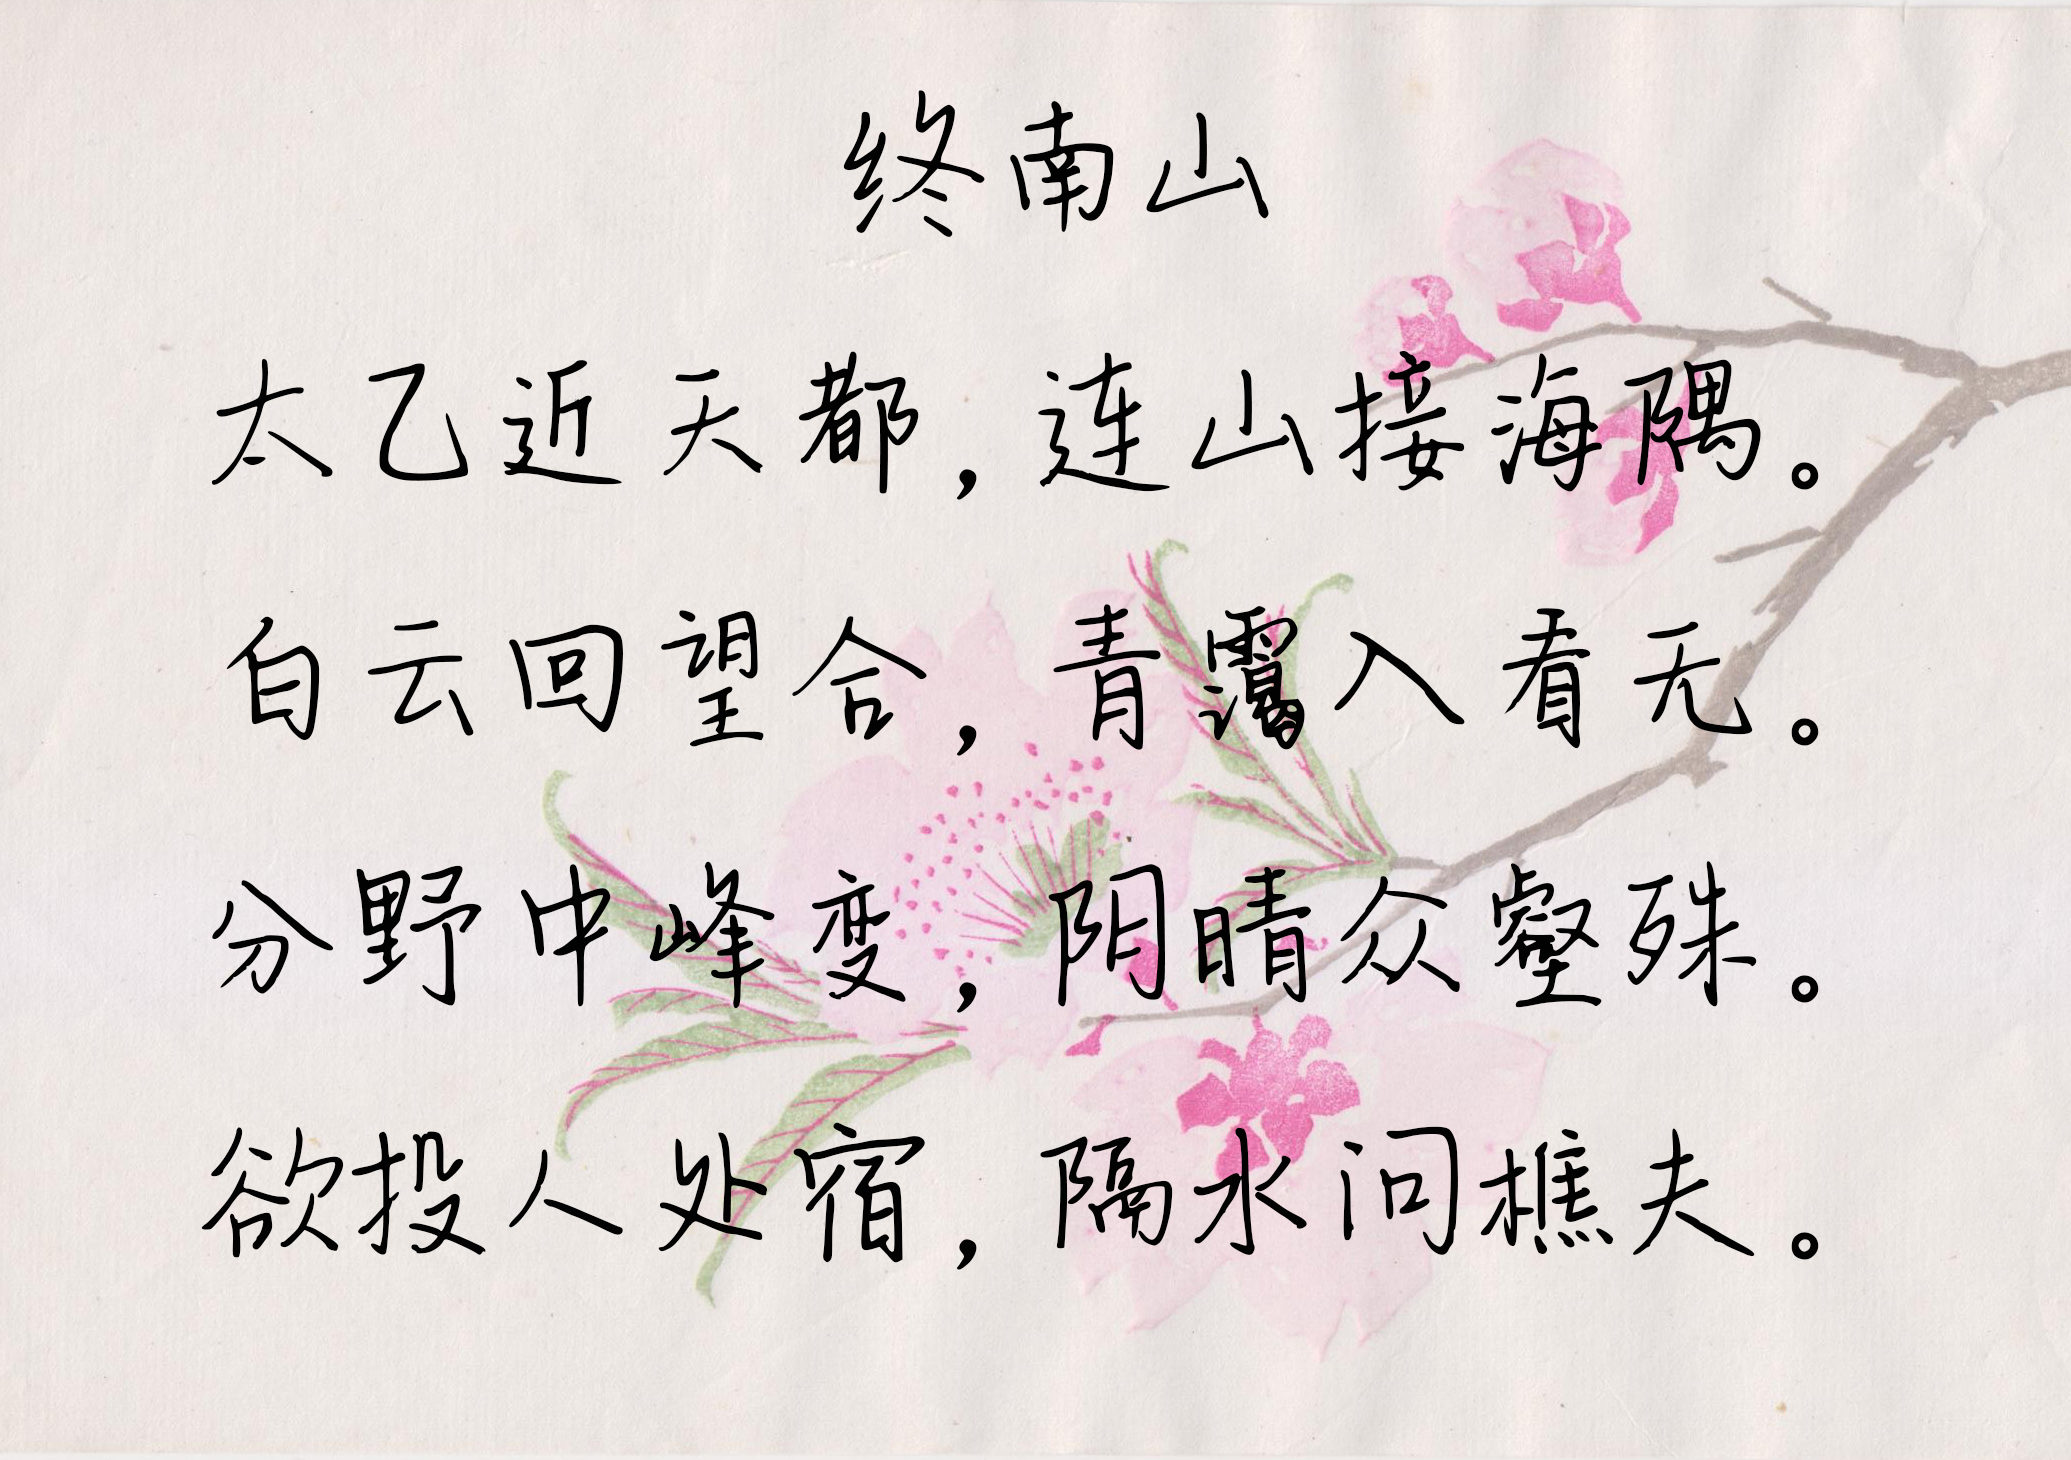 终南山
太乙近天都，连山接海隅。
白云回望合，青霭入看无。
分野中峰变，阴晴众壑殊。
欲投人处宿，隔水问樵夫。